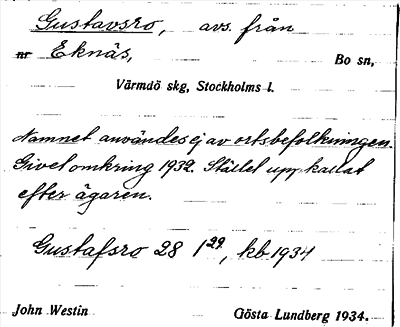 Gustavsro, avs. från
nr Eknäs, Bo sn,
Värmdö skg, Stockholms l.
Namnet användes ej av ortsbefolkningen.
Givet omkring 1932. Stället uppkallat
efter ägaren.
Gustafsro 28 1/29, kb 1934
John Westin Gösta Lundberg 1934.